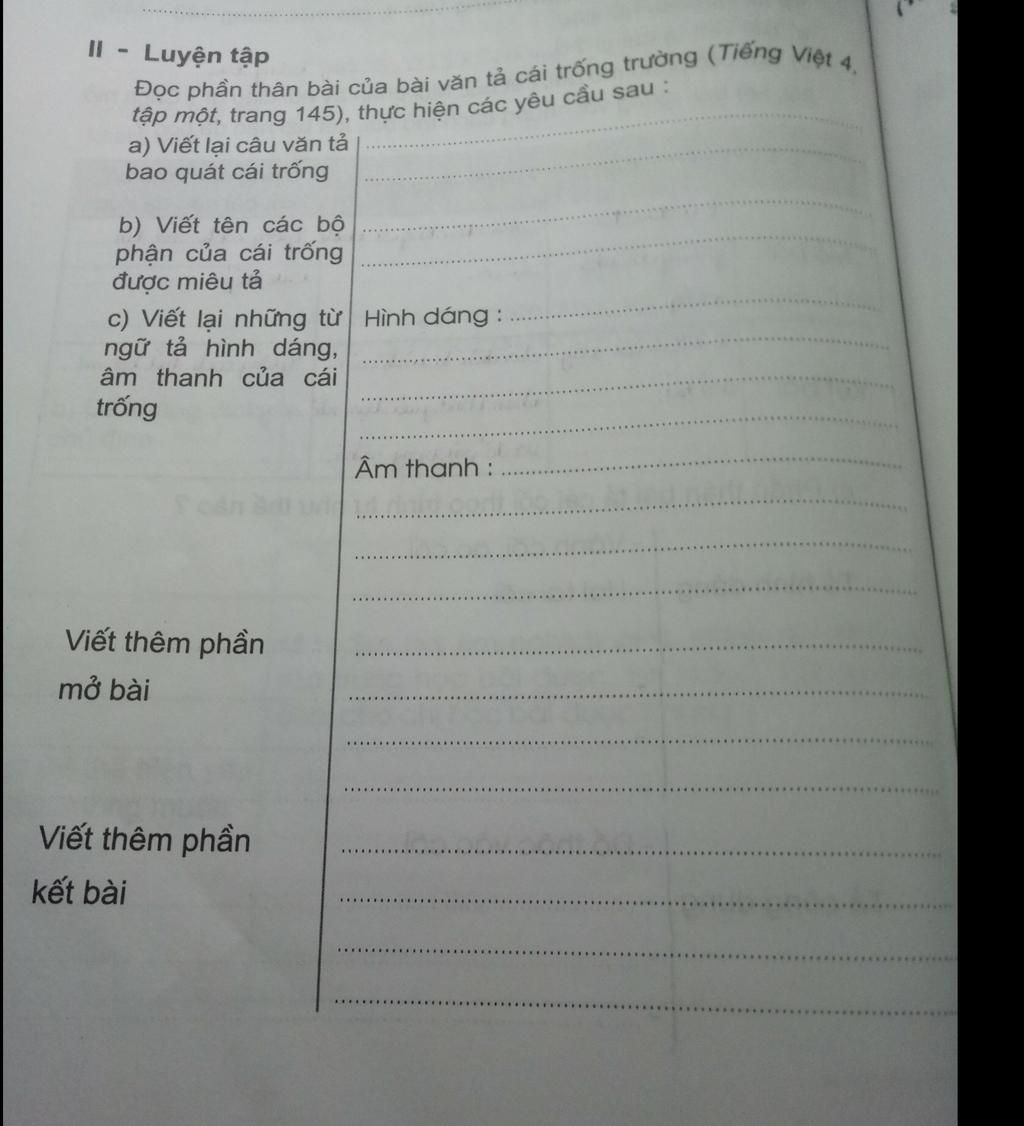 II - Luyện tập
Đọc phần thân bài của bài văn tả cái trống trường (Tiếng Việt 4,
tập một, trang 145), thực hiện các yêu cầu sau :
a) Viết lại câu văn tả
bao quát cái trống
b) Viết tên các bộ
phận của cái trống
được miêu tả
c) Viết lại những từ
ngữ tả hình dáng,
âm thanh của cái
trống
Hình dáng :
Âm thanh :
Viết thêm phần
mở bài
Viết thêm phần
kết bài